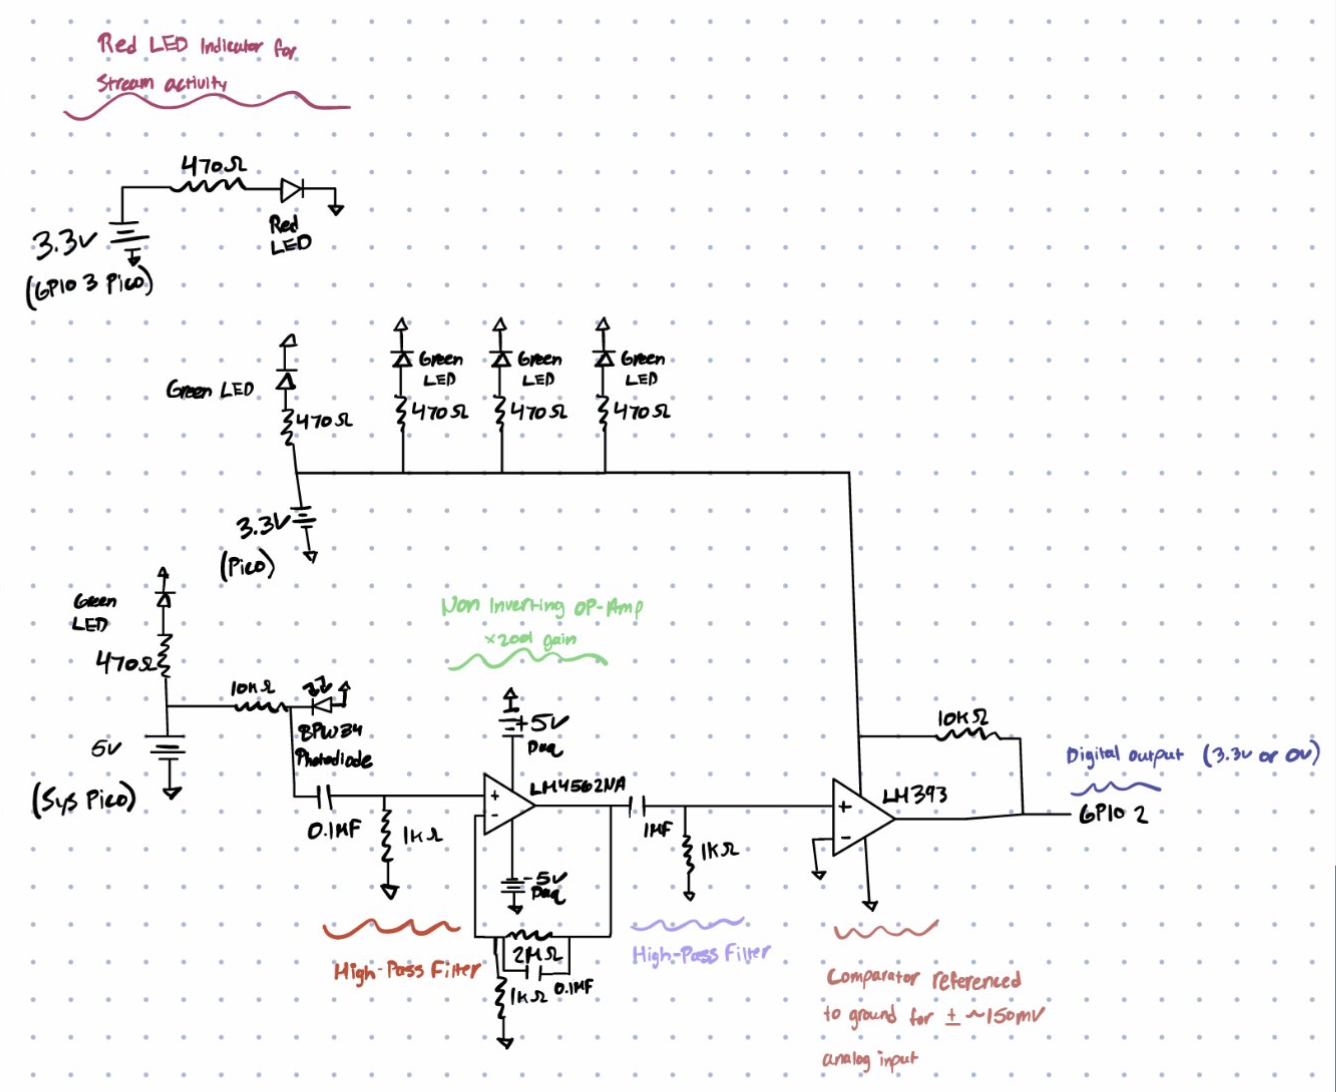 Red LED Indicator for
Stream activity
470Ω
Red
LED
3.3V
(GPIO 3 Pico)
Green LED
470Ω
Green
LED
470Ω
Green
LED
470Ω
Green
LED
470Ω
3.3V
(Pico)
Green
LED
470Ω
10KΩ
BPW34
Photodiode
5V
(Sys Pico)
0.1MF
1KΩ
Non Inverting OP-Amp
x2001 gain
+5V
Daq
LM4562NA
+
-
-5V
Daq
2MΩ
0.1MF
1KΩ
High-Pass Filter
1MF
1KΩ
High-Pass Filter
LM393
+
-
10KΩ
Digital output (3.3V or 0V)
GPIO 2
Comparator referenced
to ground for ± ~150mV
analog input